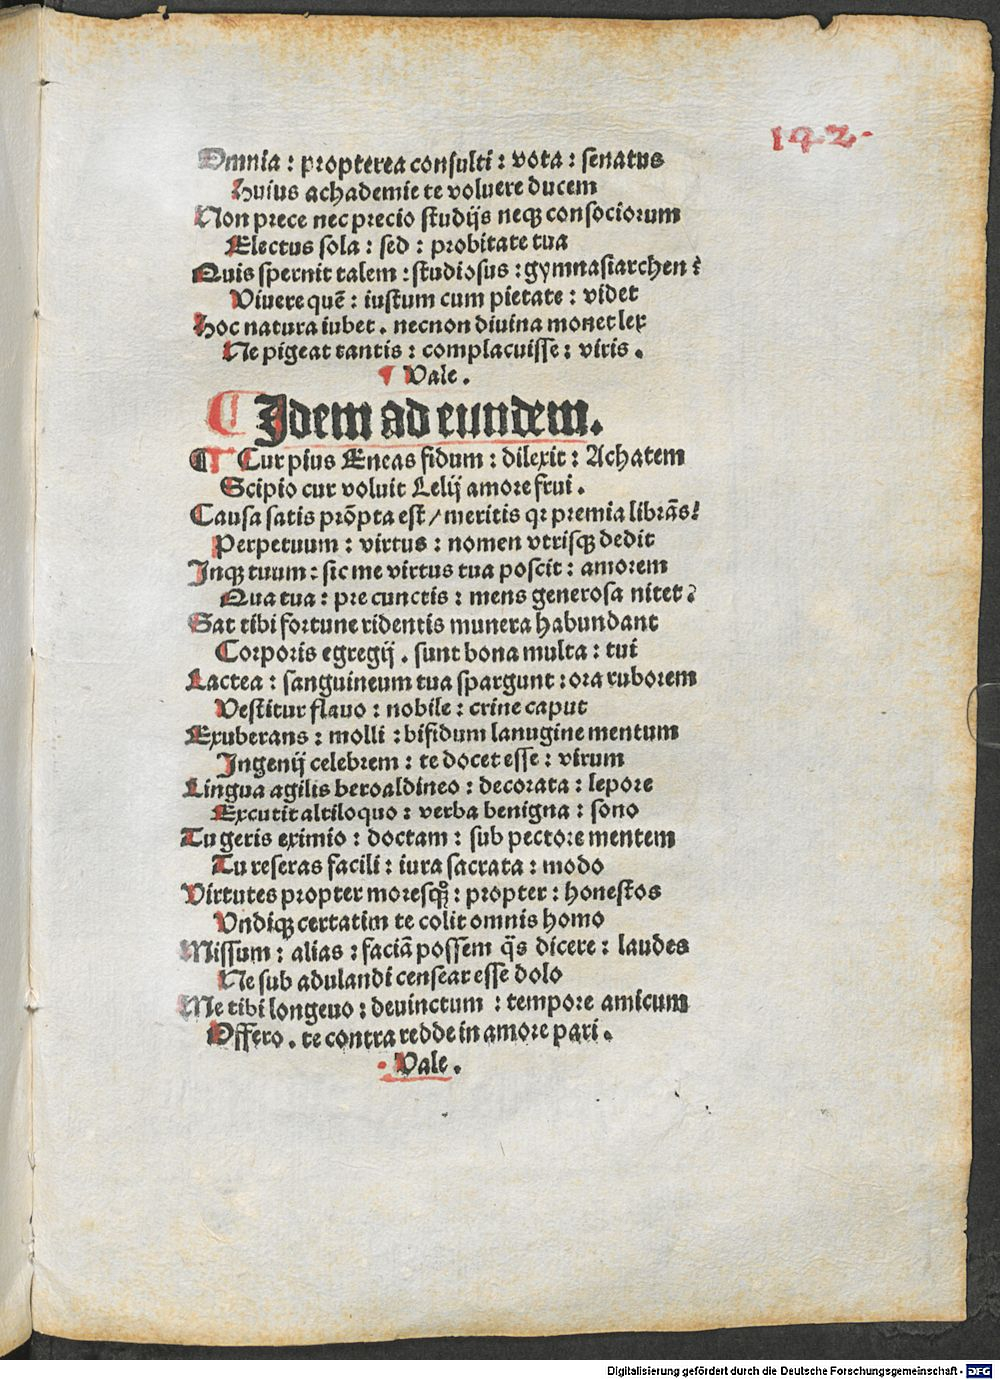 142.
Omnia : propterea consulti : vota : senatus
Huius achademie te voluere ducem
Non prece nec precio studijs neqꝫ consociorum
Electus sola : sed : probitate tua
Quis spernit talem : studiosus : gymnasiarchen ?
Viuere quē : iustum cum pietate : videt
Hoc natura iubet . necnon diuina monet lex
Ne pigeat tantis : complacuisse : viris .
¶ Vale .
¶ Idem ad eundem.
¶ Cur pius Eneas fidum : dilexit : Achatem
Scipio cur voluit Lelij amore frui .
Causa satis prōpta est / meritis qꝛ premia librās?
Perpetuum : virtus : nomen vtrisqꝫ dedit
Inqꝫ tuum : sic me virtus tua poscit : amorem
Qua tua : pre cunctis : mens generosa nitet ?
Sat tibi fortune ridentis munera habundant
Corporis egregij . sunt bona multa : tui
Lactea : sanguineum tua spargunt : ora ruborem
Vestitur flauo : nobile : crine caput
Exuberans : molli : bifidum lanugine mentum
Ingenij celebrem : te docet esse : virum
Lingua agilis beroaldineo : decorata : lepore
Excutit altiloquo : verba benigna : sono
Tu geris eximio : doctam : sub pectore mentem
Tu reseras facili : iura sacrata : modo
Virtutes propter moresqꝫ : propter : honestos
Vndiqꝫ certatim te colit omnis homo
Missum : alias : faciā possem q̄s dicere : laudes
Ne sub adulandi censear esse dolo
Me tibi longeuo : deuinctum : tempore amicum
Offero . te contra redde in amore pari .
Vale .
Digitalisierung gefördert durch die Deutsche Forschungsgemeinschaft - DFG